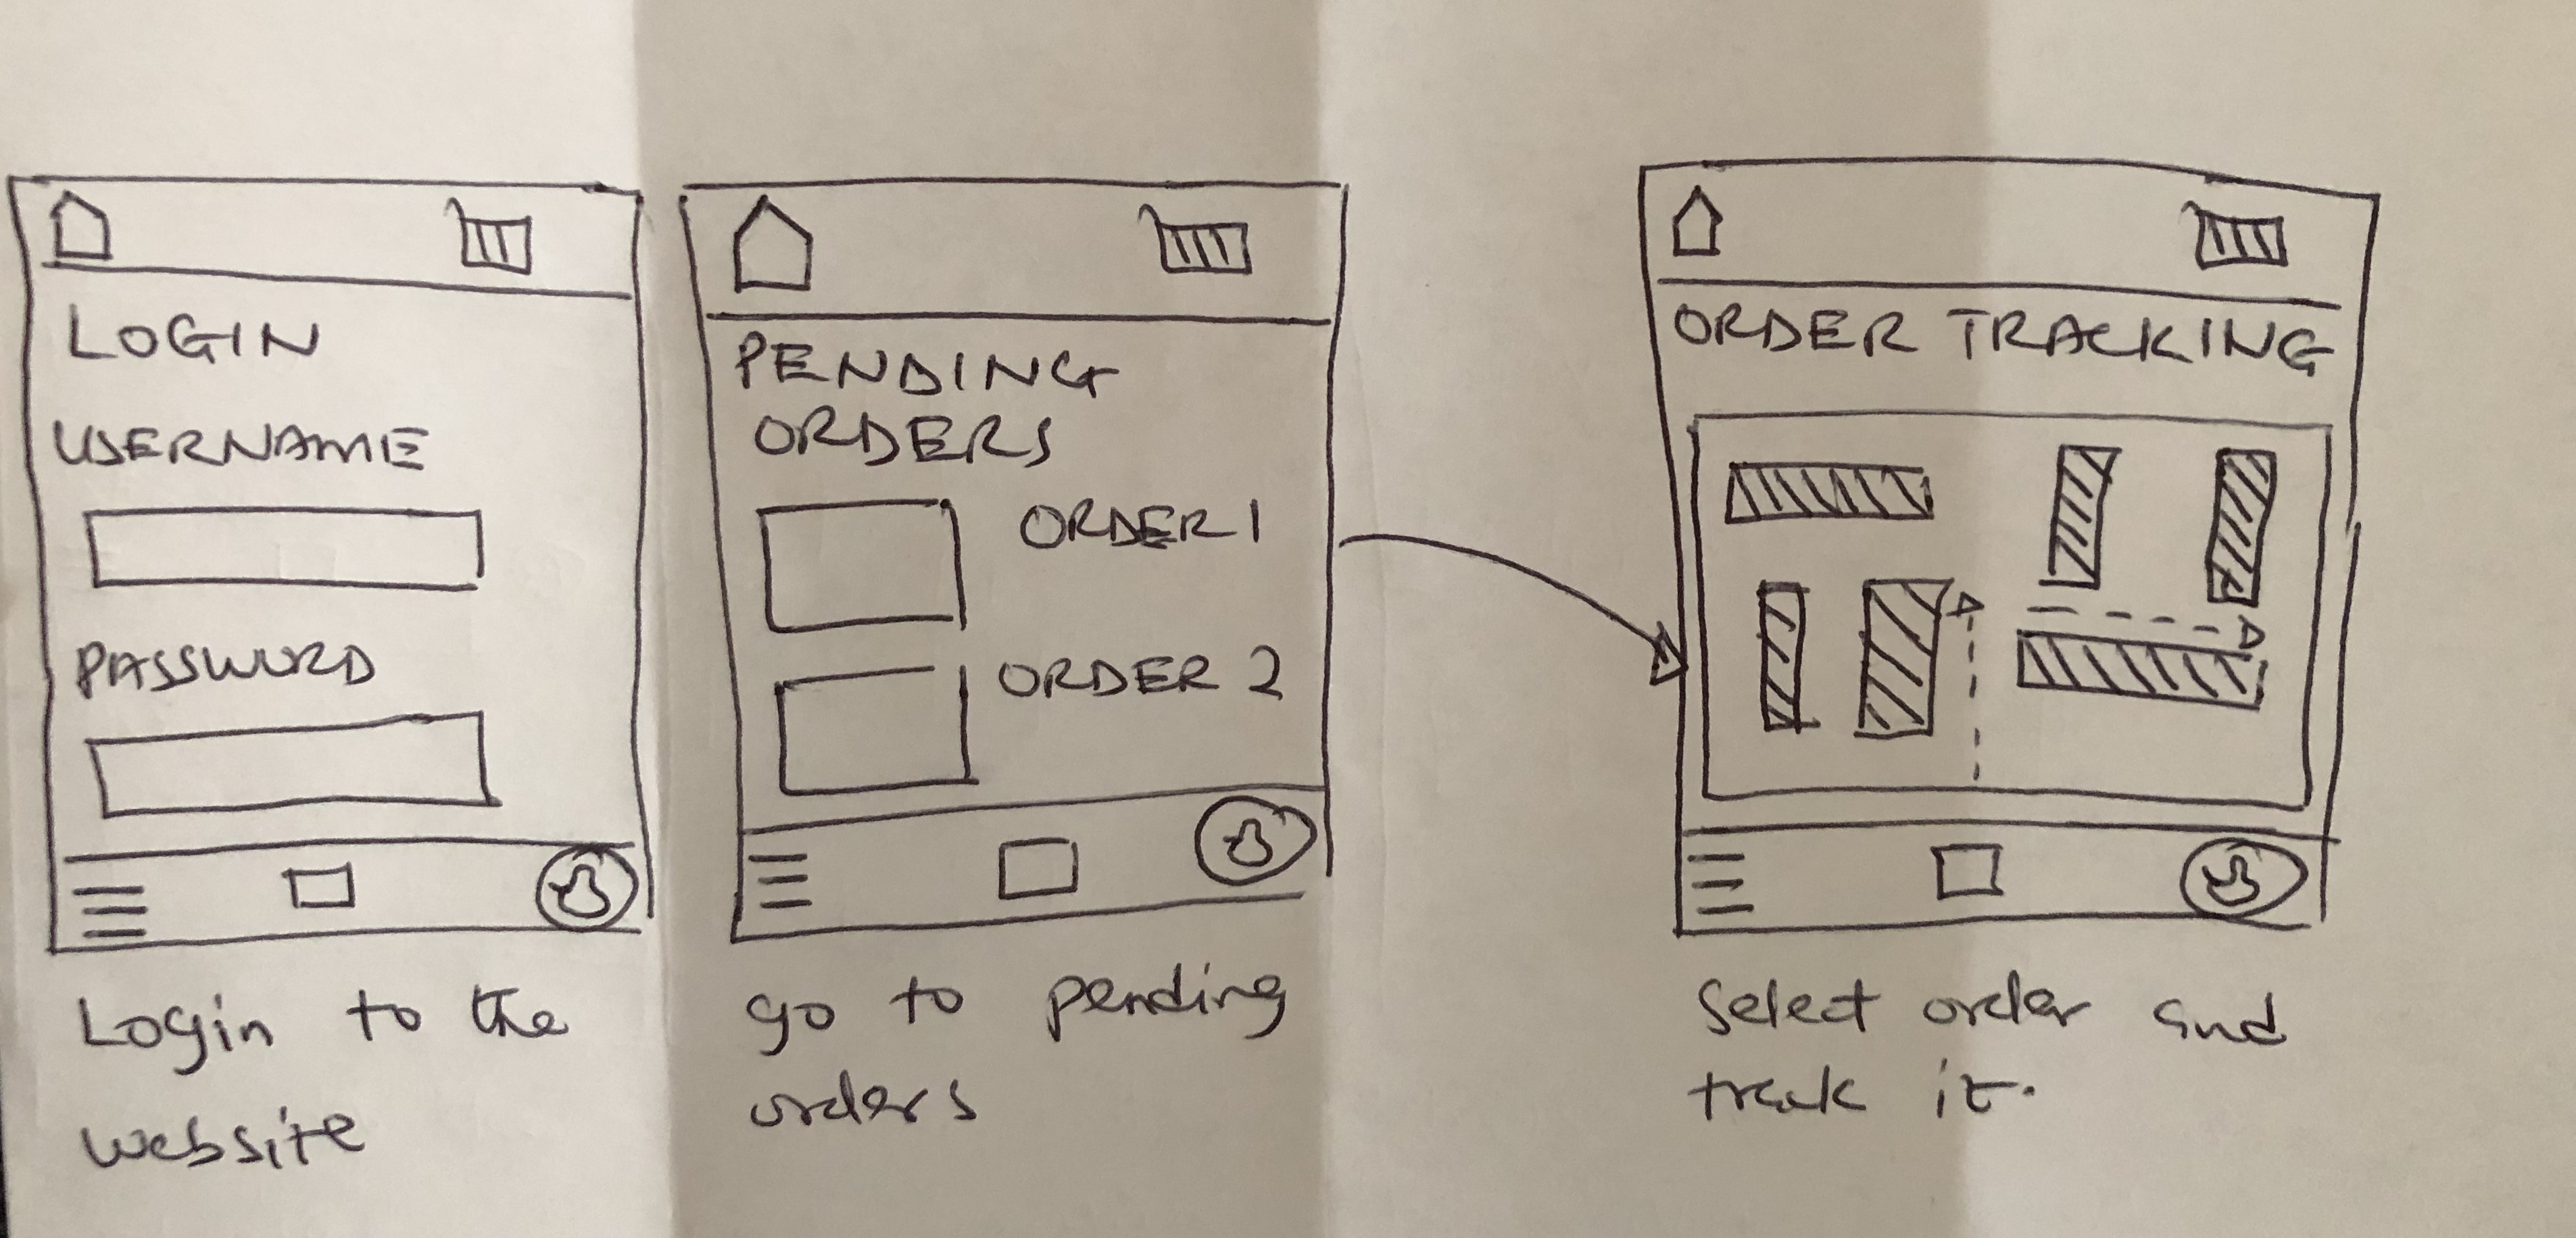 LOGIN
USERNAME
PASSWORD
Login to the
website
PENDING
ORDERS
ORDER 1
ORDER 2
go to pending
orders
ORDER TRACKING
Select order and
track it.